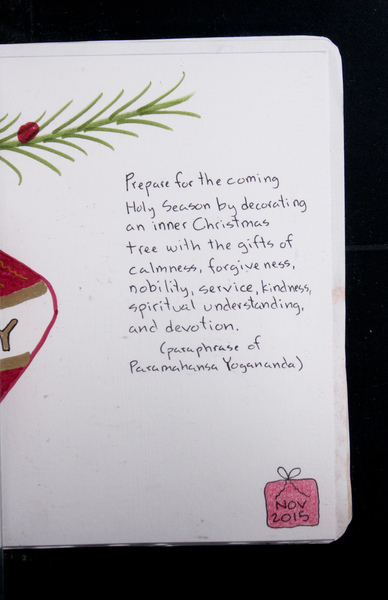 Prepare for the coming
Holy Season by decorating
an inner Christmas
tree with the gifts of
calmness, forgiveness,
nobility, service, kindness,
spiritual understanding,
and devotion.
(paraphrase of
Paramahansa Yogananda)
Y
NOV
2015